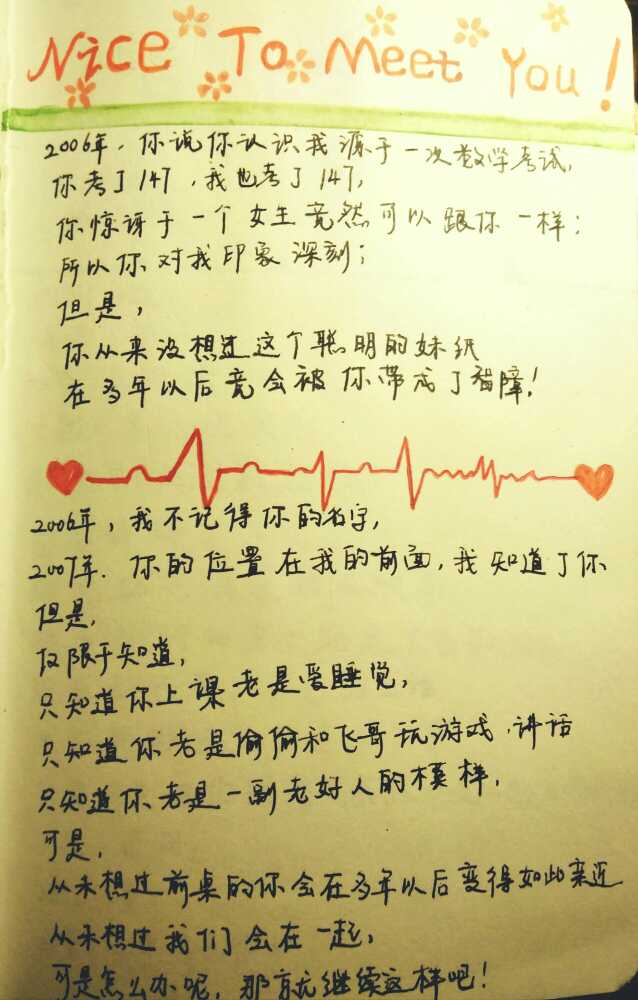 Nice To Meet You!
2006年，你说你认识我源于一次数学考试，
你考了147，我也考了147，
你惊讶于一个女生竟然可以跟你一样；
所以你对我印象深刻；
但是，
你从来没想过这个聪明的妹纸
在多年以后竟会被你带成了智障！
2006年，我不记得你的名字，
2007年．你的位置在我的前面，我知道了你
但是，
仅限于知道，
只知道你上课老是爱睡觉，
只知道你老是偷偷和飞哥玩游戏，讲话
只知道你老是一副老好人的模样，
可是，
从未想过前桌的你会在多年以后变得如此亲近
从未想过我们会在一起，
可是怎么办呢，那就继续这样吧！